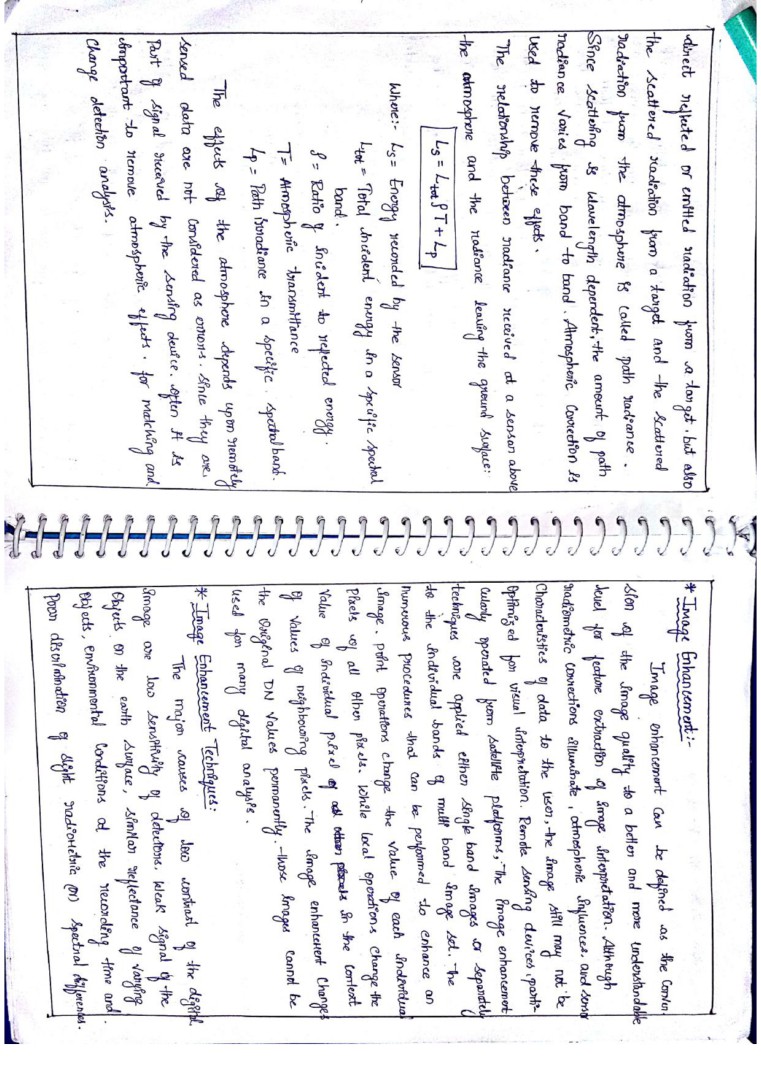 direct reflected or emitted radiation from a target. but also
the scattered radiation from a target and the scattered
radiation from the atmosphere is called path radiance.
Since scattering is wavelength dependent, the amount of path
radiance varies from band to band. Atmospheric Correction is
used to remove these effects.
The relationship between radiance received at a sensor above
the atmosphere and the radiance leaving the ground surface:
Ls = Ltot ρ T + Lp
Where:- Ls = Energy recorded by the sensor
Ltot = Total incident energy in a specific spectral
band.
ρ = Ratio of incident to reflected energy.
T = Atmospheric transmittance
Lp = Path Irradiance in a specific spectral band.
The effects of the atmosphere depends upon remotely
sensed data are not considered as errors. Since they are,
Part of signal received by the sensing device. often it is
important to remove atmospheric effects. for matching and
Change detection analysis.
* Image Enhancement:-
Image enhancement can be defined as the Conver-
sion of the image quality to a better and more understandable
level for feature extraction of image interpretation. Although
radiometric corrections illuminate, atmospheric influences, and sensor
Characteristics of data to the user, the image still may not be
Optimized for visual interpretation. Remote sensing devices, parti-
cularly operated from satellite platforms, The image enhancement
techniques were applied either single band images or seperately
to the individual bands of multi band image set. The
numerous procedures that can be performed to enhance an
image. point operations change the value of each individual
pixels of all other pixels. While local operations change the
Value of individual pixel of all other pixels in the context
of values of neighbouring pixels. The image enhancement changes
the Original DN values permanently. Those images cannot be
used for many digital analysis.
* Image Enhancement Techniques:
The major causes of low contrast of the digital
image are low sensitivity of detectors, Weak signal of the
Objects on the earth surface, similar reflectance of varying
objects, environmental Conditions at the recording time and
Poor discrimination of slight radiometric (or) spectral differences.